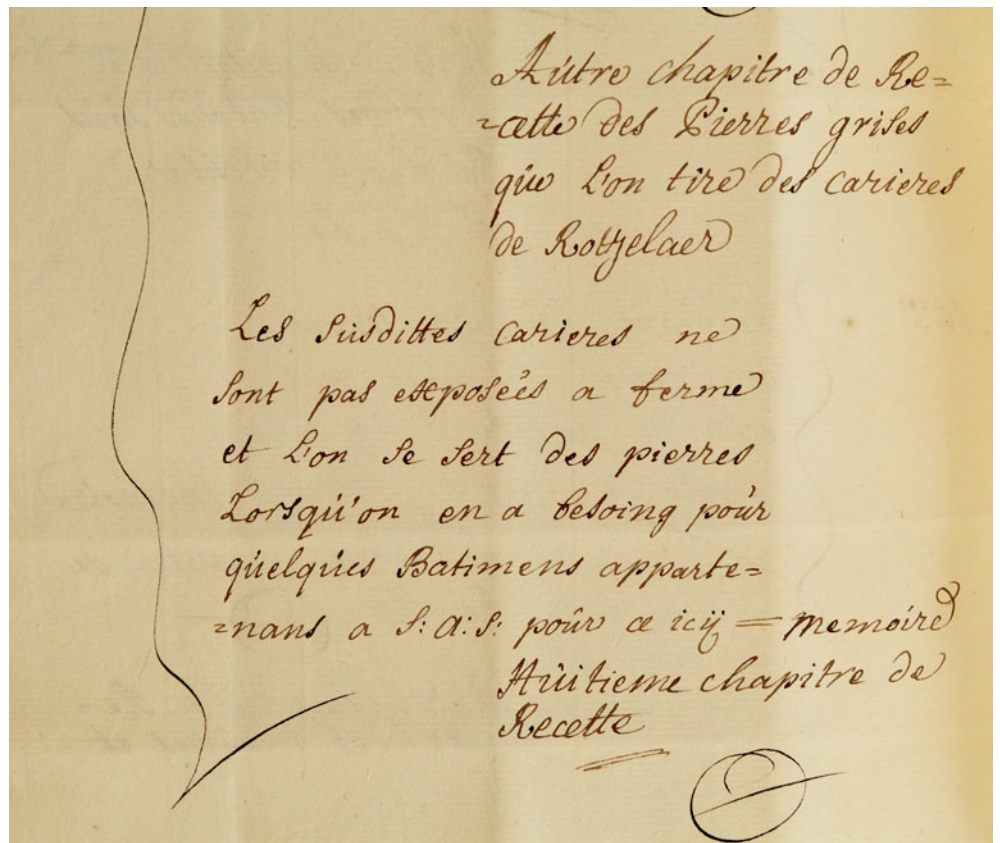 Autre chapitre de Re=
=cette des Pierres grises
que L'on tire des carieres
de Rotzelaer
Les susdittes carieres ne
sont pas exposées a ferme
et L'on se sert des pierres
Lorsqu'on en a besoing pour
quelques Batimens apparte=
=nans a S: A: S: pour ce icÿ = memoire
Huitieme chapitre de
Recette